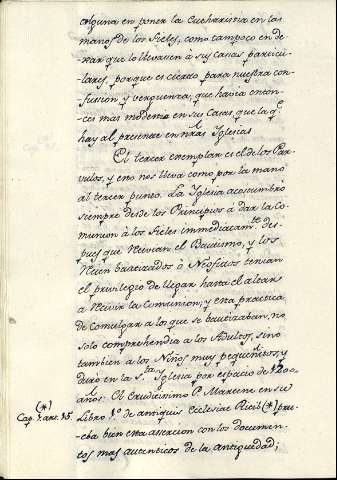 alguna en poner la Eucharistia en las
manos de los Fieles, como tampoco en de-
xar que lo llevasen à sus casas particu-
lares, porque es cierto para nuestra con-
fusion y verguenza, que havia enton-
ces mas modestia en sus Casas que la q.e
hay al presente en nr̃as Iglesias
El tercer exemplar es el de los Par-
vulos, y este nos lleva como por la mano
al tercer punto. La Iglesia acostumbrò
siempre desde los Principios à dar la Co-
munion à los Fieles immediatam.te des-
pues que recivian el Bautismo, y los
recien bautizados ò Neofitos tenian
el privilegio de llegar hasta el altar
à recivir la Comunion, y esta practica
de comulgar a los que se bautizaban, no
solo comprehendia a los Adultos, sino
tambien à los Niños muy pequeñitos, y
durò en la S.ta Yglesia por espacio de 1200
años. El Eruditissimo P. Martene en su
Libro 1.º de antiquis Ecclesiae Ritib (*) prue-
ba bien esta assercion con los documen-
tos mas autenticos de la antiguedad;
(*)
Cap. 1. art. 15.